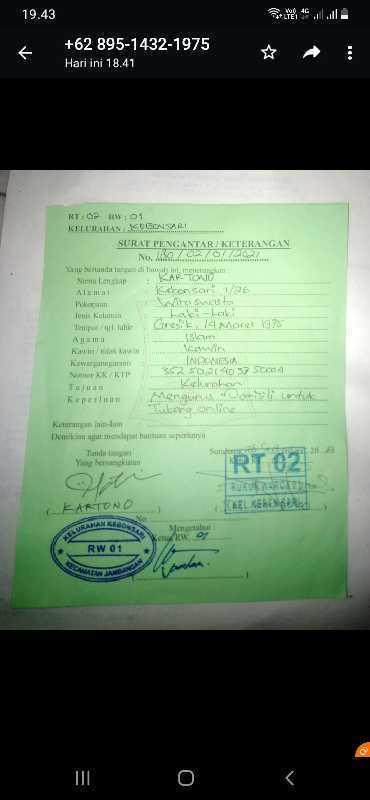 19.43
+62 895-1432-1975
Hari ini 18.41
RT : 02 RW : 01
KELURAHAN : KEBONSARI
SURAT PENGANTAR / KETERANGAN
No. 180/02/01/2021
Yang bertanda tangan di bawah ini, menerangkan :
Nama Lengkap : KARTONO
A l a m a t : Kebonsari 1/26
Pekerjaan : Wiraswasta
Jenis Kelamin : Laki-Laki
Tempat / tgl. lahir : Gresik, 14 Maret 1975
A g a m a : Islam
Kawin / tidak kawin : Kawin
Kewarganegaraan : INDONESIA
Nomor KK / KTP :
T u j u a n : Kelurahan
K e p e r l u a n : Mengurus Domisili untuk
Tukang online
Keterangan lain-lain :
Demikian agar mendapat bantuan seperlunya
Tanda tangan
Yang bersangkutan
Surabaya
RT 02
( KARTONO )
KELURAHAN KEBONSARI
RW 01
KECAMATAN JAMBANGAN
Mengetahui
Ketua RW. 01